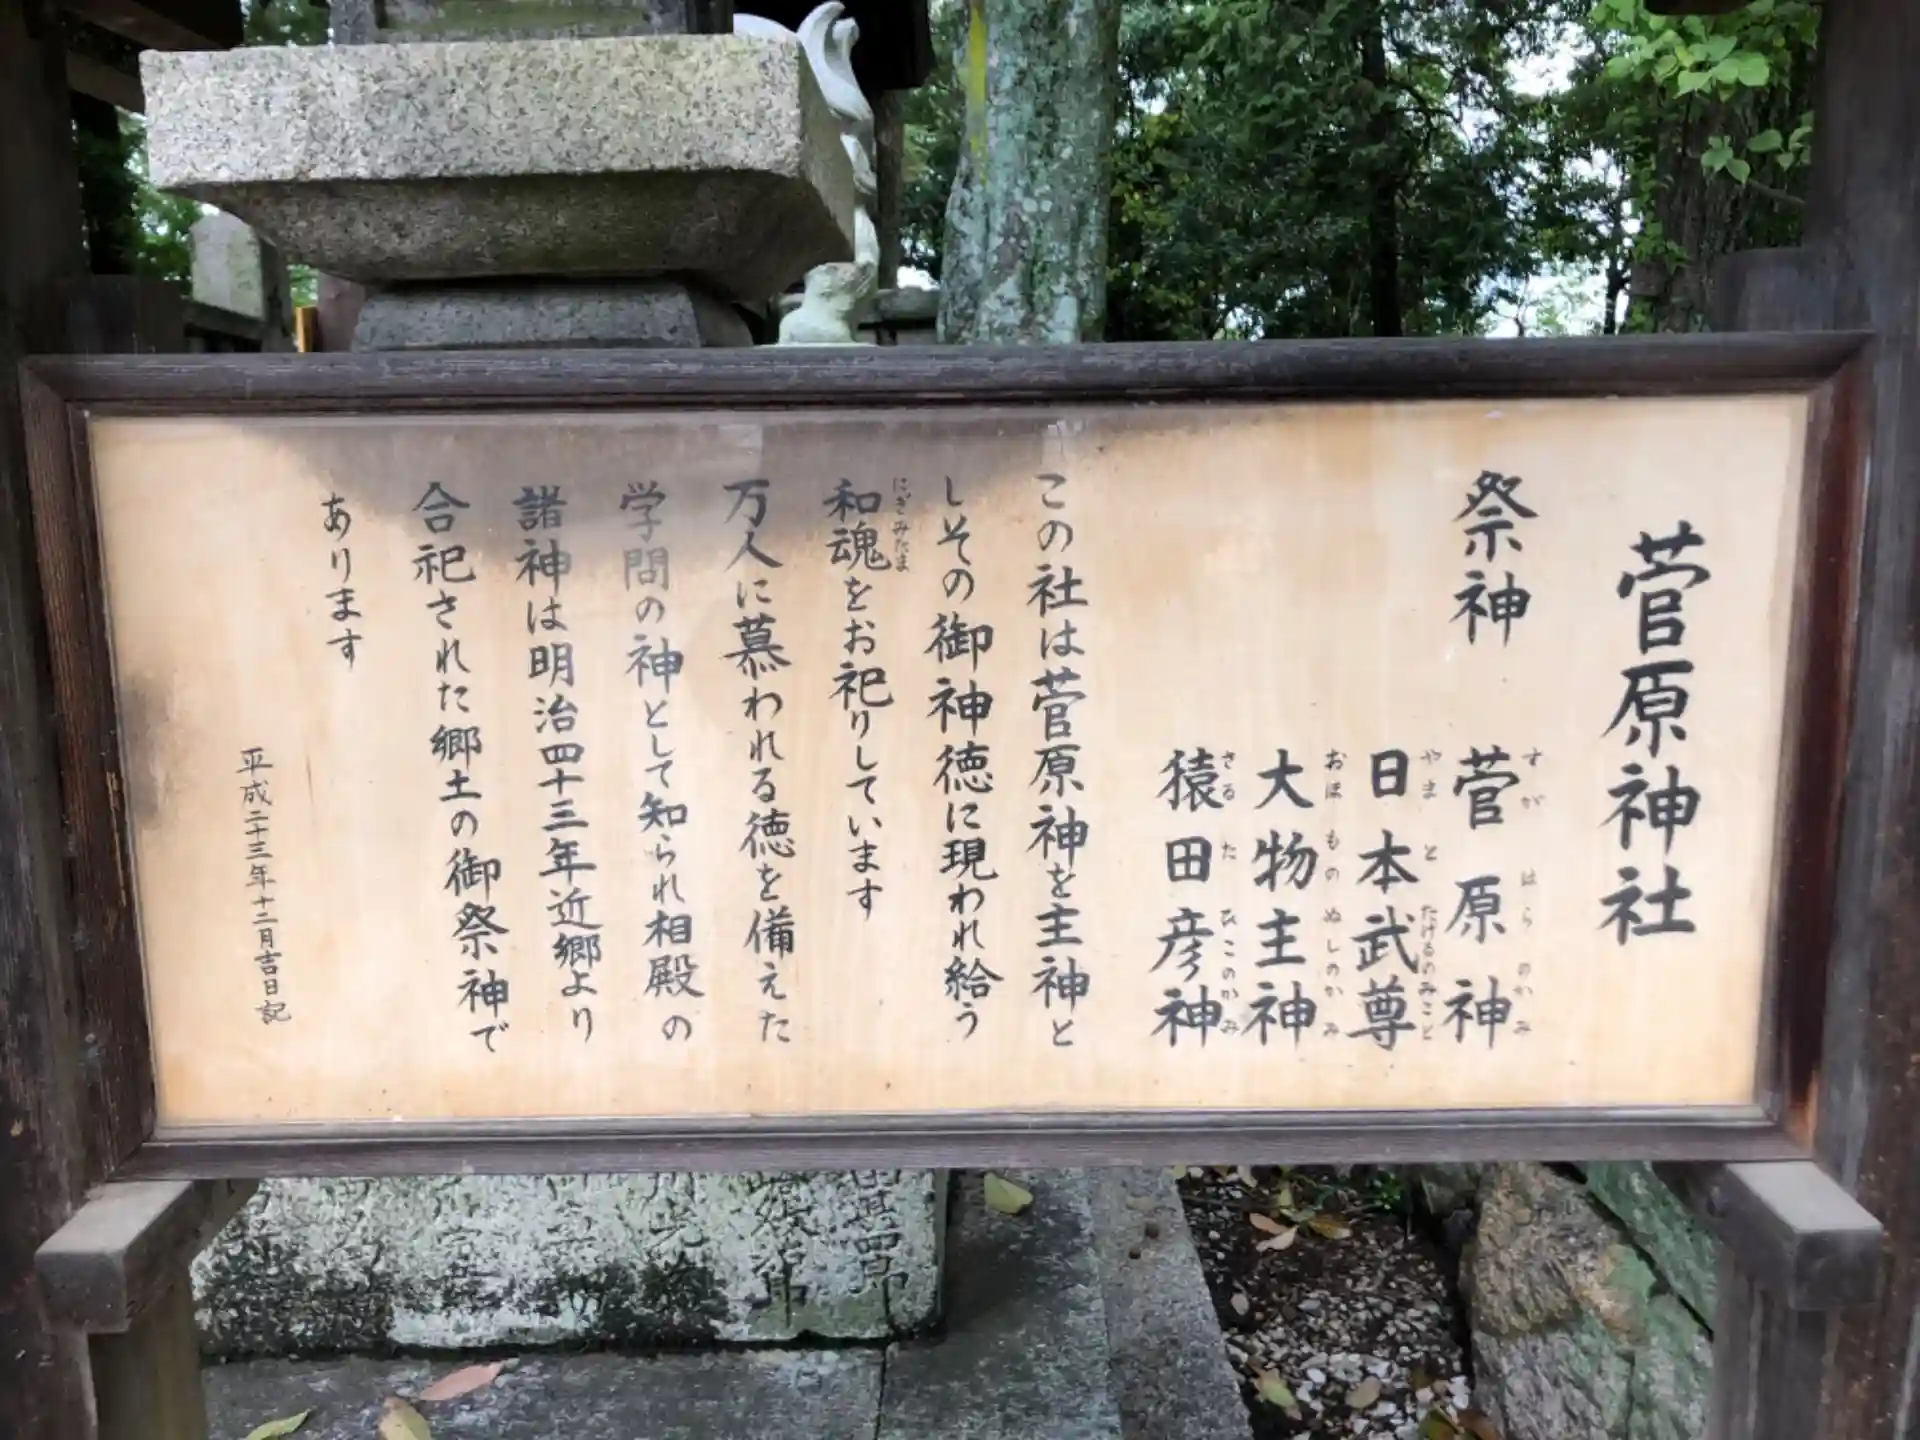 菅原神社
祭神 菅原神
すがはらのかみ
日本武尊
やまとたけるのみこと
大物主神
おほものぬしのかみ
猿田彦神
さるたひこのかみ
この社は菅原神を主神と
しその御神徳に現われ給う
和魂をお祀りしています
にぎみたま
万人に慕われる徳を備えた
学問の神として知られ相殿の
諸神は明治四十三年近郷より
合祀された郷土の御祭神で
あります
平成二十三年十二月吉日記